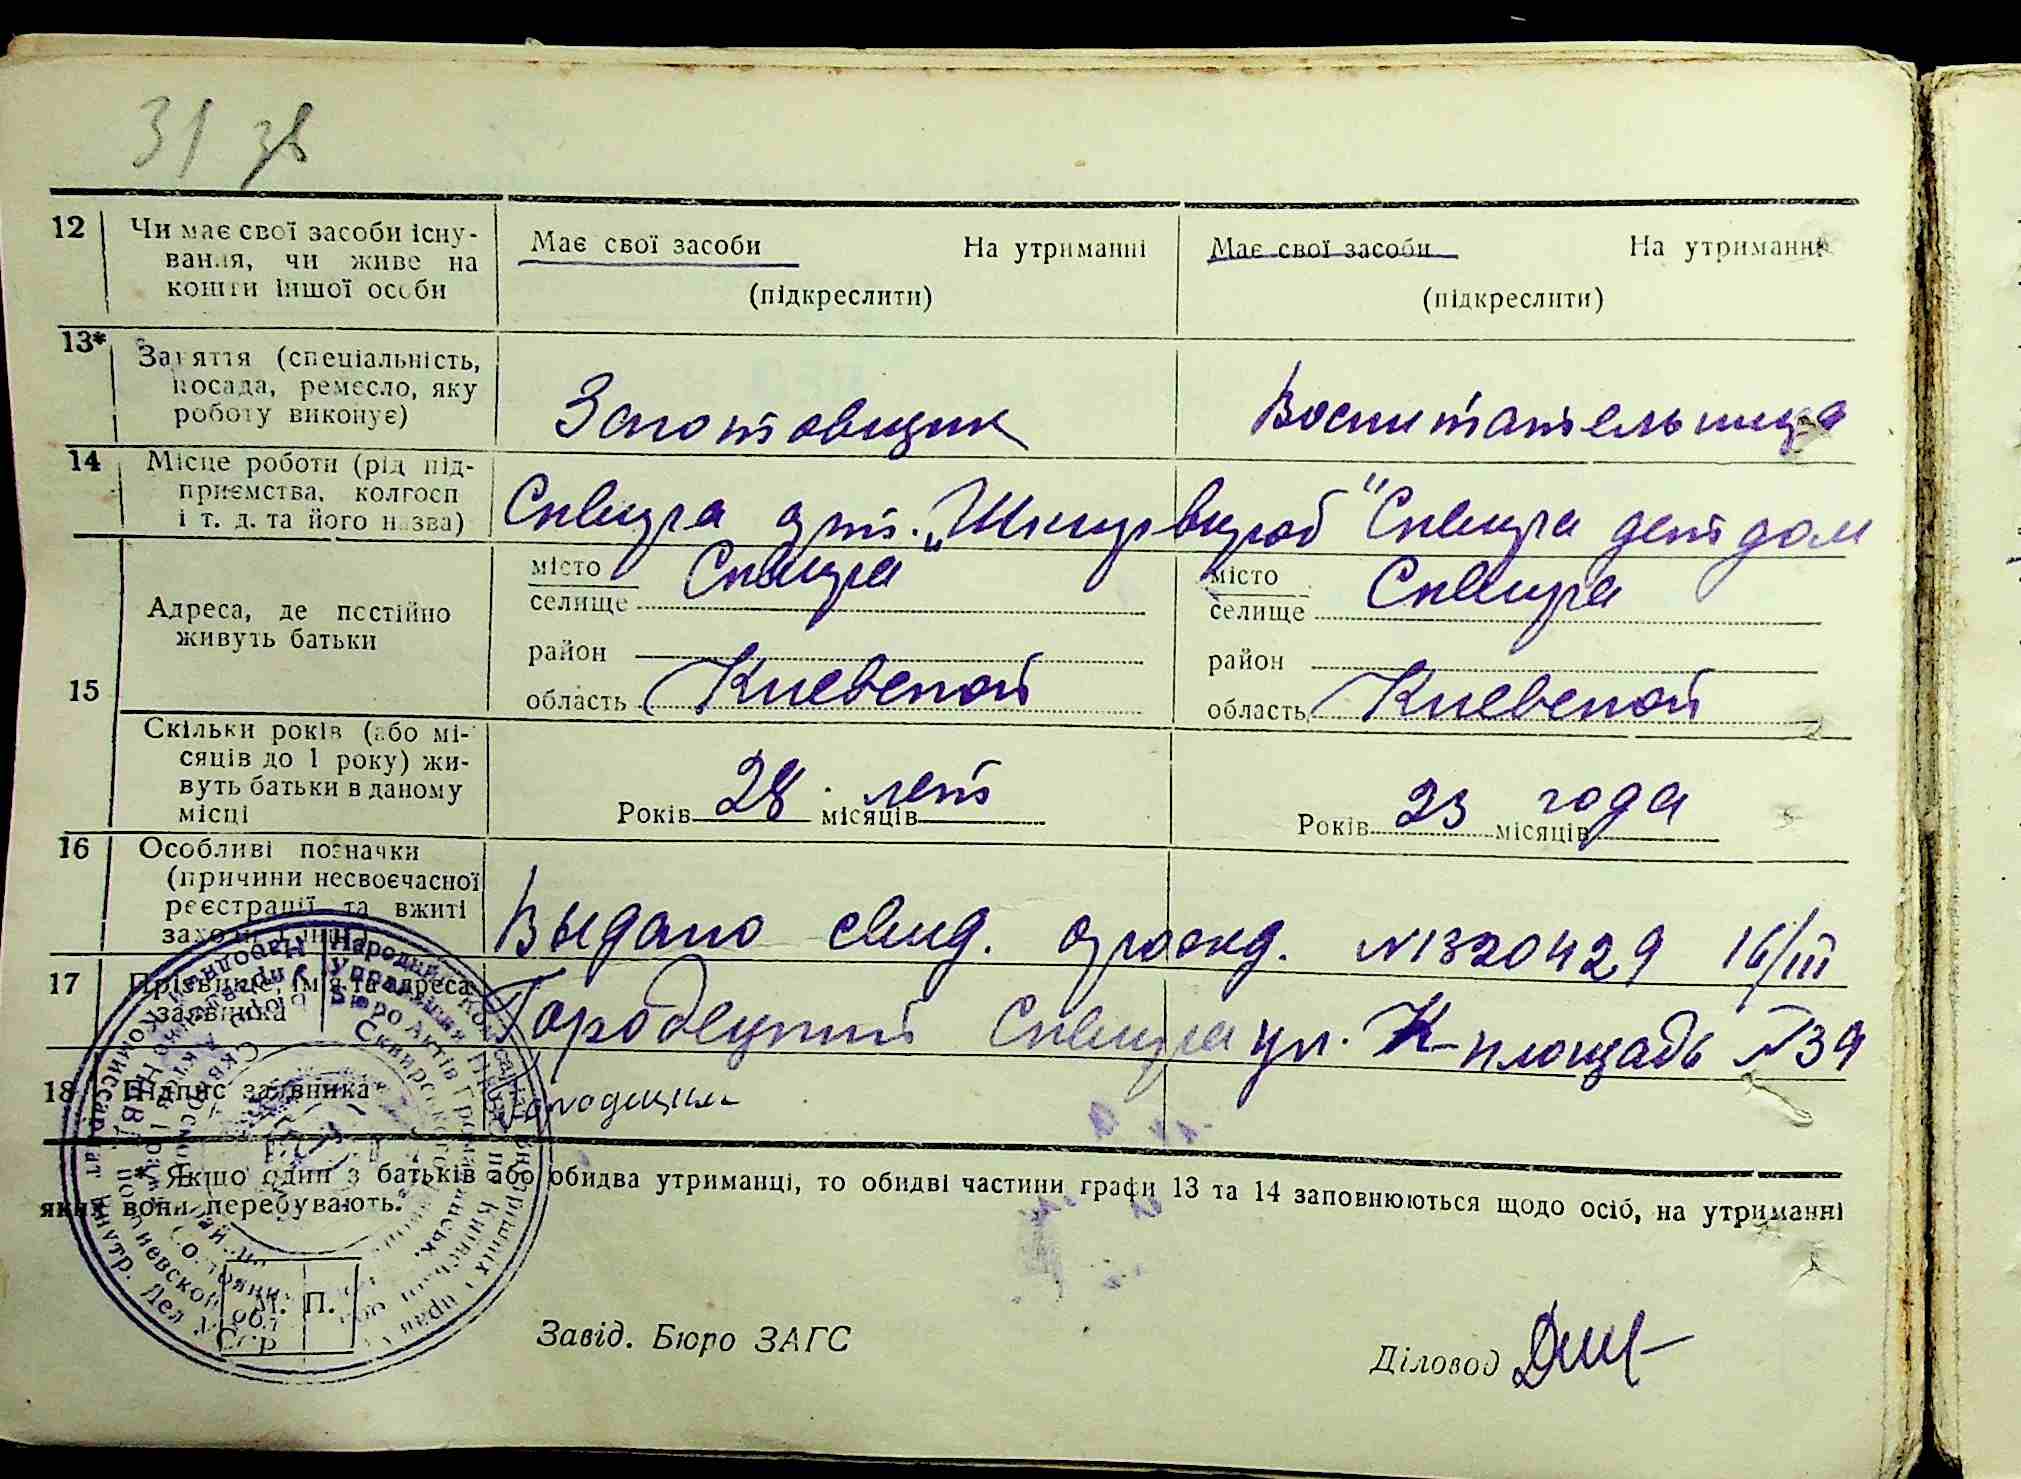 31 зв
12 Чи має свої засоби існу-
вання, чи живе на
кошти іншої особи
Має свої засоби На утриманні
(підкреслити)
Має свої засоби На утриманні
(підкреслити)
13* Заняття (спеціальність,
посада, ремесло, яку
роботу виконує)
Заготовщик
Воспитательница
14 Місце роботи (рід під-
приємства, колгосп
і т. д. та його назва)
Сквира арт. „Шкирвироб"
Сквира детдом
15 Адреса, де постійно
живуть батьки
місто Сквира
селище
район
область Киевской
місто Сквира
селище
район
область Киевской
Скільки років (або мі-
сяців до 1 року) жи-
вуть батьки в даному
місці
Років 28 місяців лет
Років 23 місяців года
16 Особливі позначки
(причини несвоєчасної
реєстрації та вжиті
Выдано свид. о рожд. №1320429 16/III
17 Прізвище, ім'я та адреса
заявника
Городецкий Сквира ул. К-площадь №39
18 Підпис заявника
* Якщо один з батьків або обидва утриманці, то обидві частини графи 13 та 14 заповнюються щодо осіб, на утриманні
яких вони перебувають.
М. П.
Завід. Бюро ЗАГС
Діловод